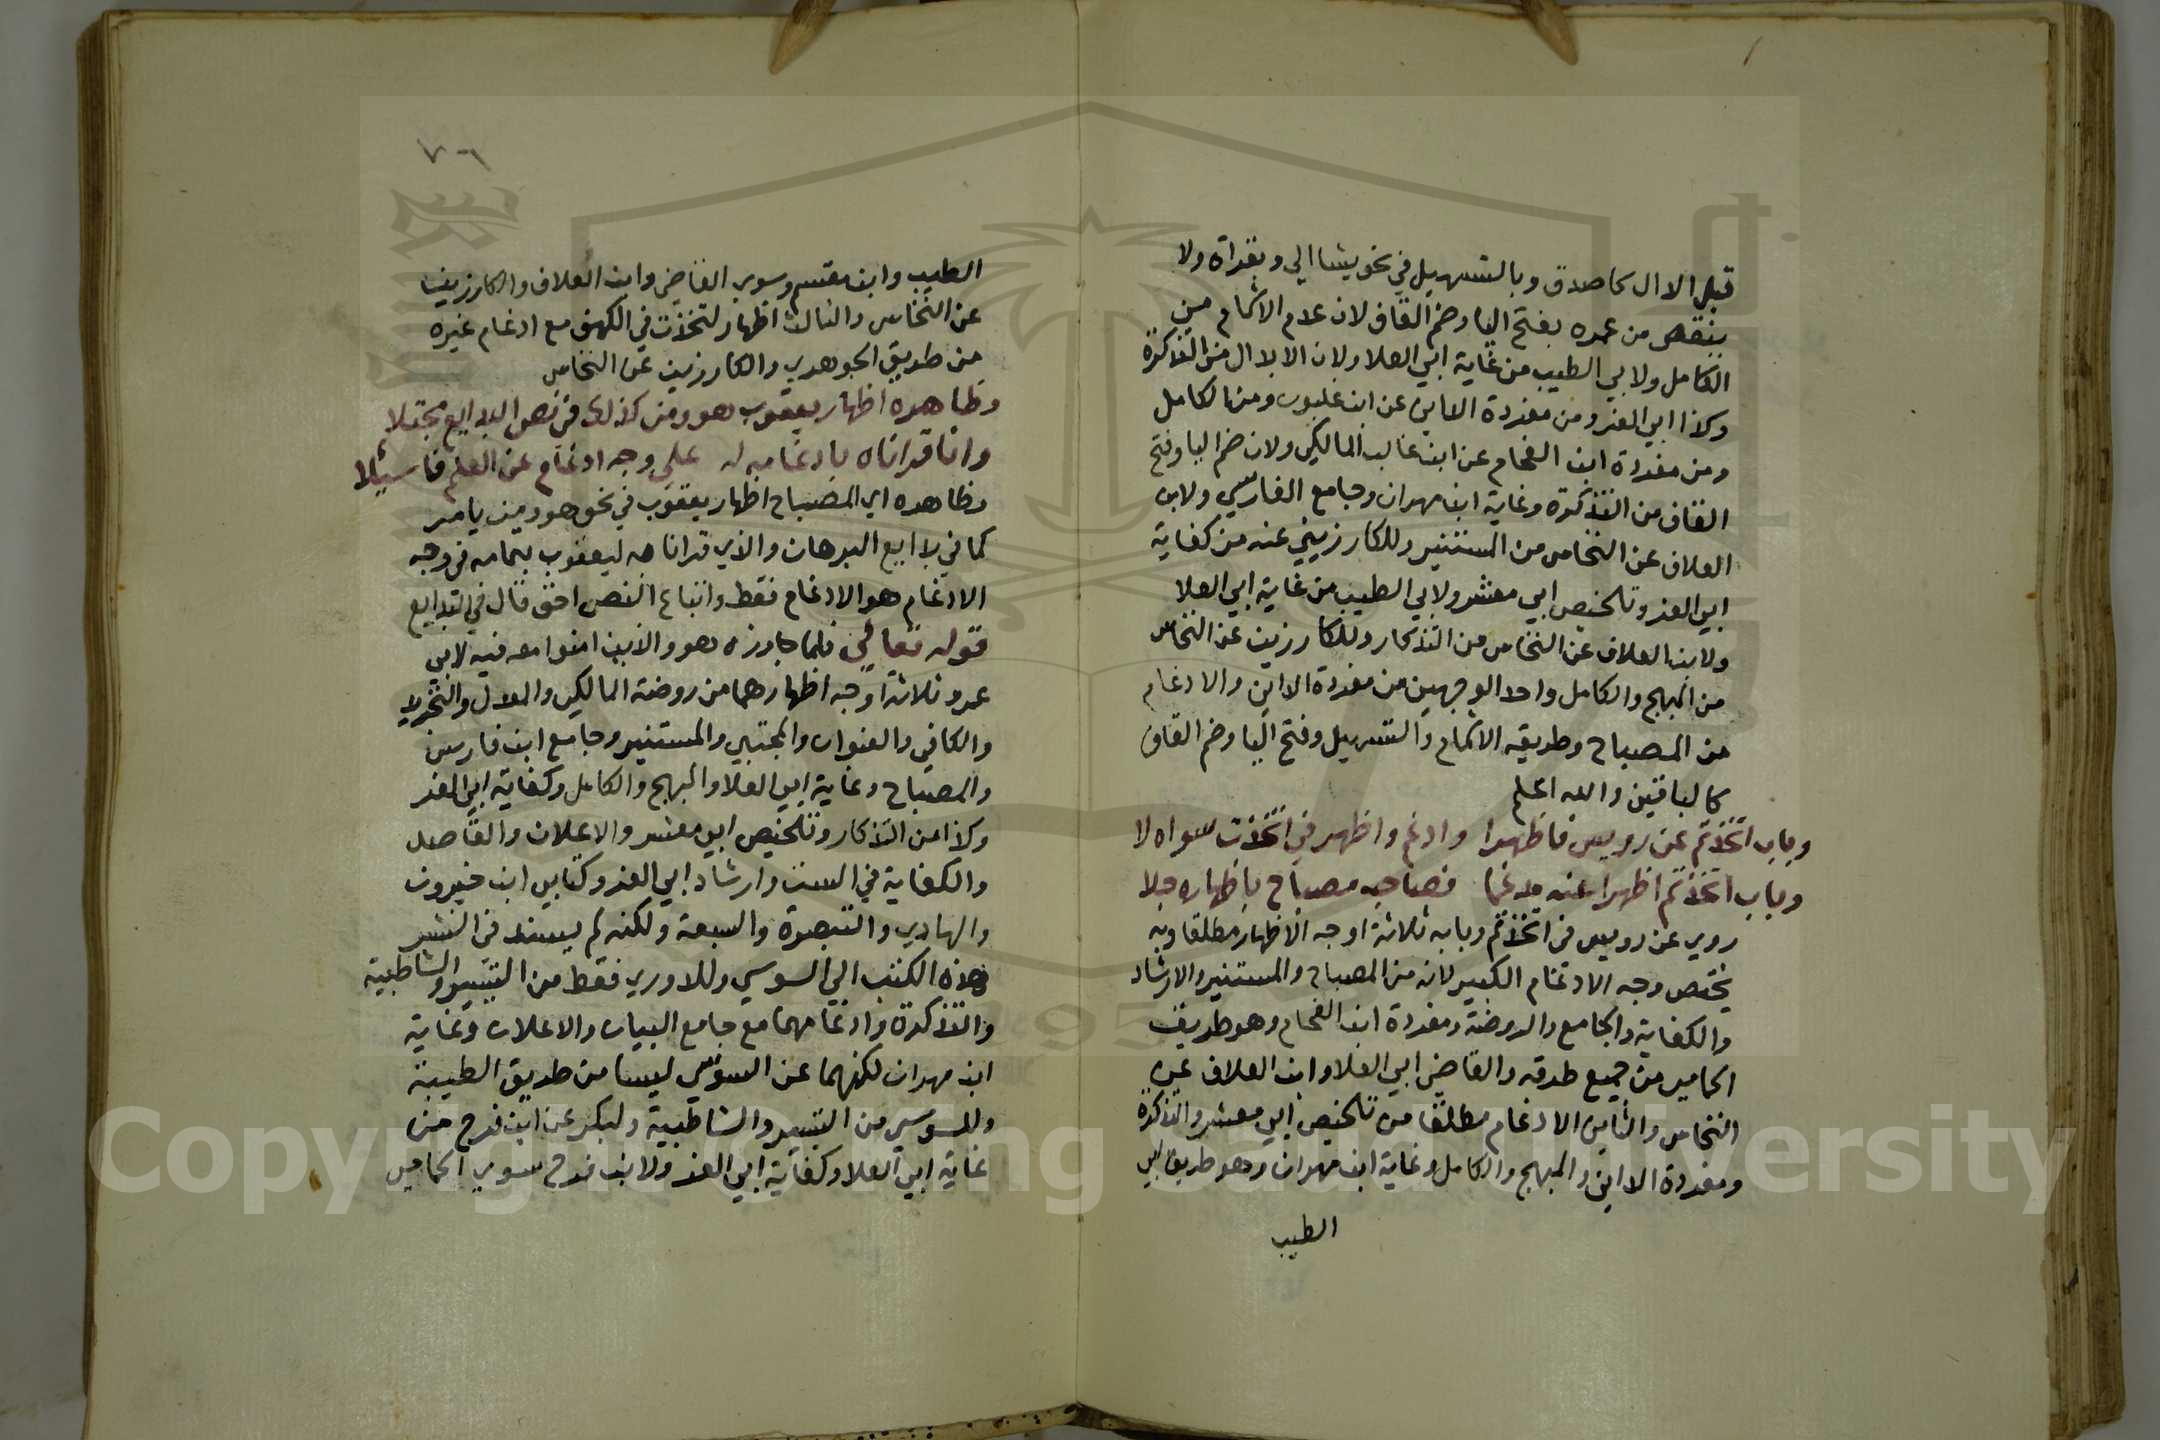 قبل الدال كاصدق وبالتسهيل في نحو يشا الي وبقراة ولا
ينقص من عمره بفتح اليا وضم القاف لان عدم الاشمام من
الكامل ولابي الطيب من غاية ابي العلا ولان الابدال من التذكرة
وكذا ابي العز ومن مفردة الداني عن ابن غلبون ومن الكامل
ومن مفردة ابن الفحام عن ابن غالب المالكي ولان ضم اليا وفتح
القاف من التذكرة وغاية ابن مهران وجامع الفارسي ولابن
العلاف عن النخاس من المستنير وللكارزيني عنه من كفاية
ابي العز وتلخيص ابي معشر ولابي الطيب من غاية ابي العلا
ولابن العلاف عن النخاس من التذكار وللكارزين عن النخاس
من المبهج والكامل واحد الوجهين من مفردة الداني والادغام
من المصباح وطريقه الاشمام والتسهيل وفتح اليا وضم القاف
كالباقين والله اعلم
وباب اتخذتم عن رويس فاظهرا وادغم واظهر في اتخذت سواه لا
وباب اتخذتم اظهرا عنه مدغما فصاحب مصباح باظهاره جلا
روي عن رويس في اتخذتم وبابه ثلاثة اوجه الاظهار مطلقا وبه
يختص وجه الادغام الكبير لانه من المصباح والمستنير والارشاد
والكفاية والجامع والروضة ومفردة ابن الفحام وهو طريق
الحمامي من جميع طرقه والقاضي ابي العلا وابن العلاف عن
النخاس والثاني الادغام مطلقا من تلخيص ابي معشر والتذكرة
ومفردة الداني والمبهج والكامل وغاية ابن مهران وهو طريق ابي
الطيب
٧٦
الطيب وابن مقسم وسوي القاضي وابن العلاف والكارزيني
عن النخاس والثالث اظهار لتخذت في الكهف مع ادغام غيره
من طريق الجوهري والكارزين عن النخاس
وظاهره اظهار يعقوب هو ومن كذلك في نص البدايع مجتلا
وانا قراناه بادغامه له على وجه ادغام عن العلم فاسئلا
وظاهره اي المصباح اظهار يعقوب في نحو هو ومن يامر
كما في بدايع البرهان والذي قراناه ليعقوب بتمامه في وجه
الادغام هو الادغام فقط واتباع النص احق قال في البدايع
قوله تعالي فلما جاوزه هو والذين امنوا معه فيه لابي
عمرو ثلاثة اوجه اظهارهما من روضة المالكي والمعدل والتجريد
والكافي والعنوان والمجتبي والمستنير وجامع ابن فارس
والمصباح وغاية ابي العلا والمبهج والكامل وكفاية ابي العز
وكذا من التذكار وتلخيص ابي معشر والاعلان والقاصد
والكفاية في الست وارشاد ابي العز وكتابي ابن خيرون
والهادي والتبصرة والسبعة ولكنه لم يسند في النشر
هذه الكتب الي السوسي وللدوري فقط من التيسير والشاطبية
والتذكرة وادغامهما مع جامع البيان والاعلان وغاية
ابن مهران لكنهما عن السوسي ليسا من طريق الطيبة
وللسوسي من التيسير والشاطبية ولبكر عن ابن فرح من
غاية ابي العلا وكفاية ابي العز ولابن فرح سوي الحمامي
Copyright © King Saud University